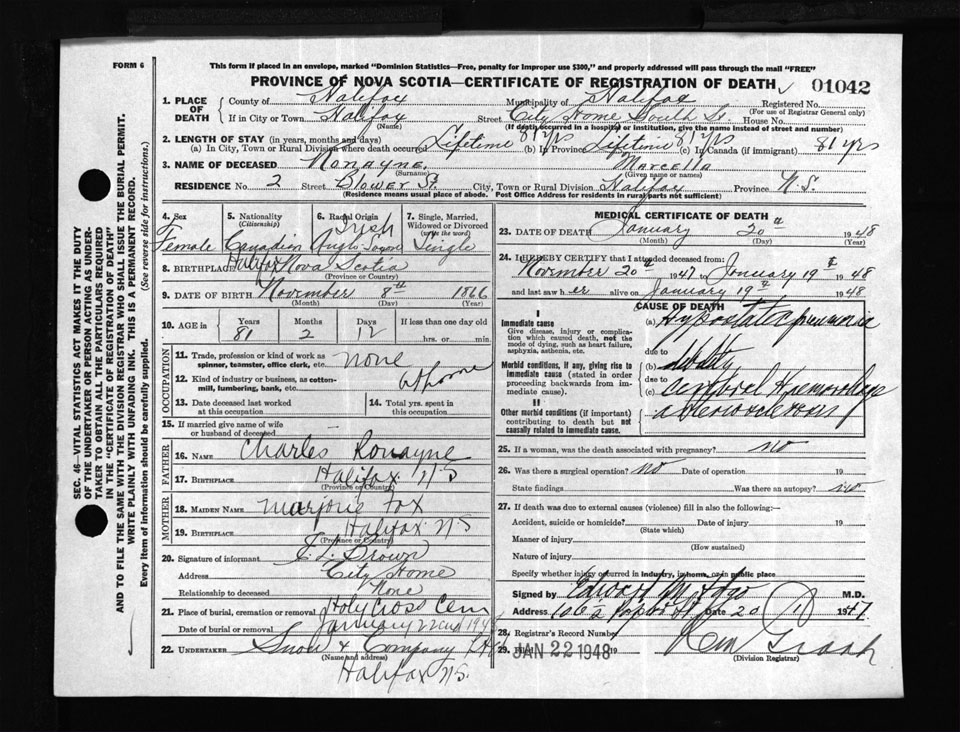 FORM 6
This form if placed in an envelope, marked "Dominion Statistics—Free, penalty for improper use $300," and properly addressed will pass through the mail "FREE"
PROVINCE OF NOVA SCOTIA—CERTIFICATE OF REGISTRATION OF DEATH 01042
1. PLACE OF DEATH County of Halifax Municipality of Halifax Registered No.
(For use of Registrar General only)
If in City or Town Halifax Street City Home South St. House No.
(Name) (If death occurred in a hospital or institution, give the name instead of street and number)
2. LENGTH OF STAY (in years, months and days)
(a) In City, Town or Rural Division where death occurred Lifetime 81 yrs (b) In Province Lifetime 81 yrs (c) In Canada (if immigrant) 81 yrs
3. NAME OF DECEASED Ronayne, Marcella
(Surname) (Given name or names)
RESIDENCE No. 2 Street Blower St. City, Town or Rural Division Halifax Province N.S.
(Residence means usual place of abode. Post Office Address for residents in rural parts not sufficient)
4. Sex Female
5. Nationality (Citizenship) Canadian
6. Racial Origin Irish Anglo Saxon
7. Single, Married, Widowed or Divorced (write the word) Single
8. BIRTHPLACE Halifax Nova Scotia
(Province or Country)
9. DATE OF BIRTH November 8th 1866
(Month) (Day) (Year)
10. AGE in Years Months Days If less than one day old
81 2 12 hrs. or min.
OCCUPATION
11. Trade, profession or kind of work as spinner, teamster, office clerk, etc. none
12. Kind of industry or business, as cotton-mill, lumbering, bank, etc. at home
13. Date deceased last worked at this occupation
14. Total yrs. spent in this occupation
15. If married give name of wife or husband of deceased
FATHER
16. NAME Charles Ronayne
17. BIRTHPLACE Halifax N S
(Province or Country)
MOTHER
18. MAIDEN NAME Marjorie Fox
19. BIRTHPLACE Halifax N.S.
(Province or Country)
20. Signature of informant Brown
Address City Home
Relationship to deceased None
21. Place of burial, cremation or removal Holy Cross Cem
Date of burial or removal January 22nd 194
22. UNDERTAKER Snow & Company
(Name and address)
Halifax N.S.
MEDICAL CERTIFICATE OF DEATH
23. DATE OF DEATH January 20th 1948
(Month) (Day) (Year)
24. I HEREBY CERTIFY that I attended deceased from:
November 20th 1947 to January 19th 1948
and last saw her alive on January 19th 1948
CAUSE OF DEATH
I
Immediate cause
Give disease, injury or complication which caused death, not the mode of dying, such as heart failure, asphyxia, asthenia, etc.
(a) Hypostatic pneumonia
due to
Morbid conditions, if any, giving rise to immediate cause (stated in order proceeding backwards from immediate cause).
(b) debility
due to
(c) cerebral Haemorrhage
II
Other morbid conditions (if important) contributing to death but not causally related to immediate cause.
arteriosclerosis
25. If a woman, was the death associated with pregnancy? no
26. Was there a surgical operation? no Date of operation 19
State findings Was there an autopsy? no
27. If death was due to external causes (violence) fill in also the following:—
Accident, suicide or homicide? Date of injury 19
(State which)
Manner of injury
(How sustained)
Nature of injury
Specify whether injury occurred in industry, in home, or in public place
Signed by Edward M. M.D.
Address Date 20 1947
28. Registrar's Record Number
29. JAN 22 1948 19
(Division Registrar)
SEC. 46—VITAL STATISTICS ACT MAKES IT THE DUTY OF THE UNDERTAKER OR PERSON ACTING AS UNDERTAKER TO OBTAIN ALL THE PARTICULARS REQUIRED IN THE "CERTIFICATE OF REGISTRATION OF DEATH" AND TO FILE THE SAME WITH THE DIVISION REGISTRAR WHO SHALL ISSUE THE BURIAL PERMIT.
WRITE PLAINLY WITH UNFADING INK. THIS IS A PERMANENT RECORD.
Every item of information should be carefully supplied. (See reverse side for instructions.)